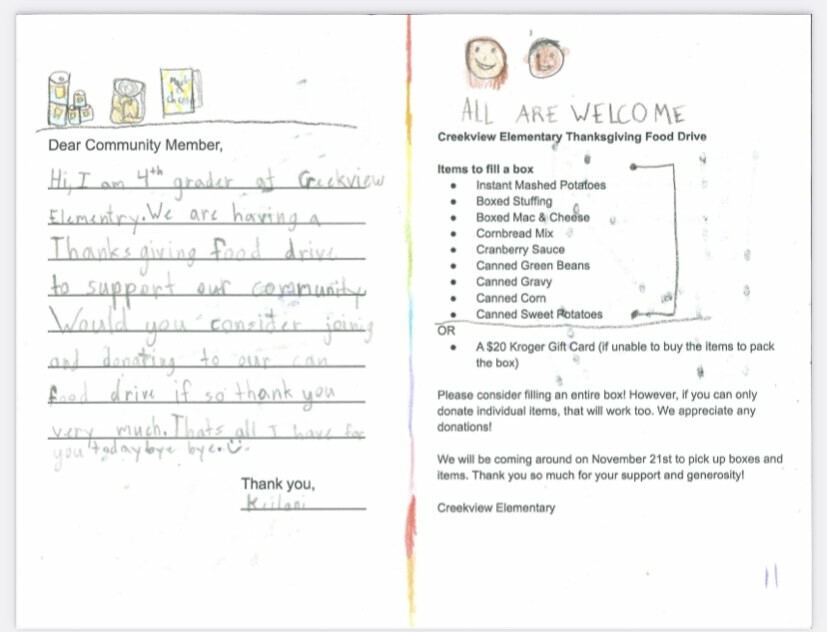 Mac & cheese
Dear Community Member,
Hi, I am 4th grader at Creekview
Elementry. We are having a
Thanksgiving food drive
to support our community
Would you consider joining
and donating to our can
food drive if so thank you
very much. Thats all I have for
you today bye bye.
Thank you,
Kiilani
ALL ARE WELCOME
Creekview Elementary Thanksgiving Food Drive
Items to fill a box
• Instant Mashed Potatoes
• Boxed Stuffing
• Boxed Mac & Cheese
• Cornbread Mix
• Cranberry Sauce
• Canned Green Beans
• Canned Gravy
• Canned Corn
• Canned Sweet Potatoes
OR
• A $20 Kroger Gift Card (if unable to buy the items to pack
the box)
Please consider filling an entire box! However, if you can only
donate individual items, that will work too. We appreciate any
donations!
We will be coming around on November 21st to pick up boxes and
items. Thank you so much for your support and generosity!
Creekview Elementary
11